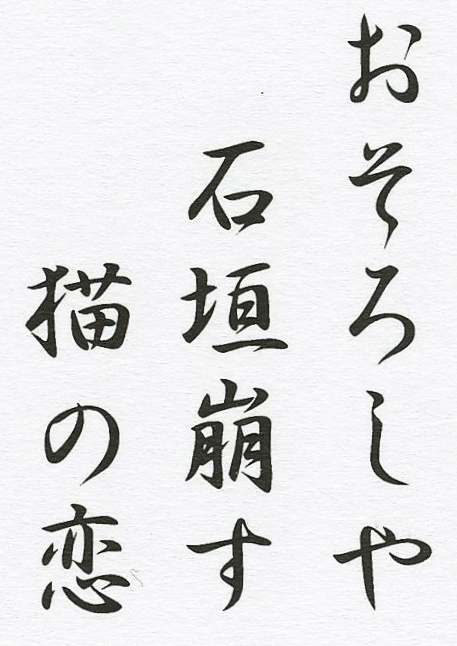 おそろしや
石垣崩す
猫の恋